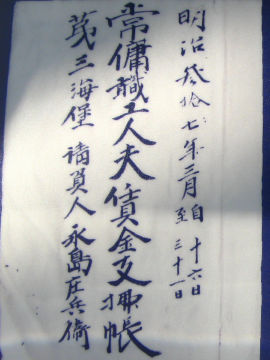 明治参拾七年三月自十六日至三十一日
常傭職工人夫賃金支拂帳
第三海堡請負人永島庄兵衛